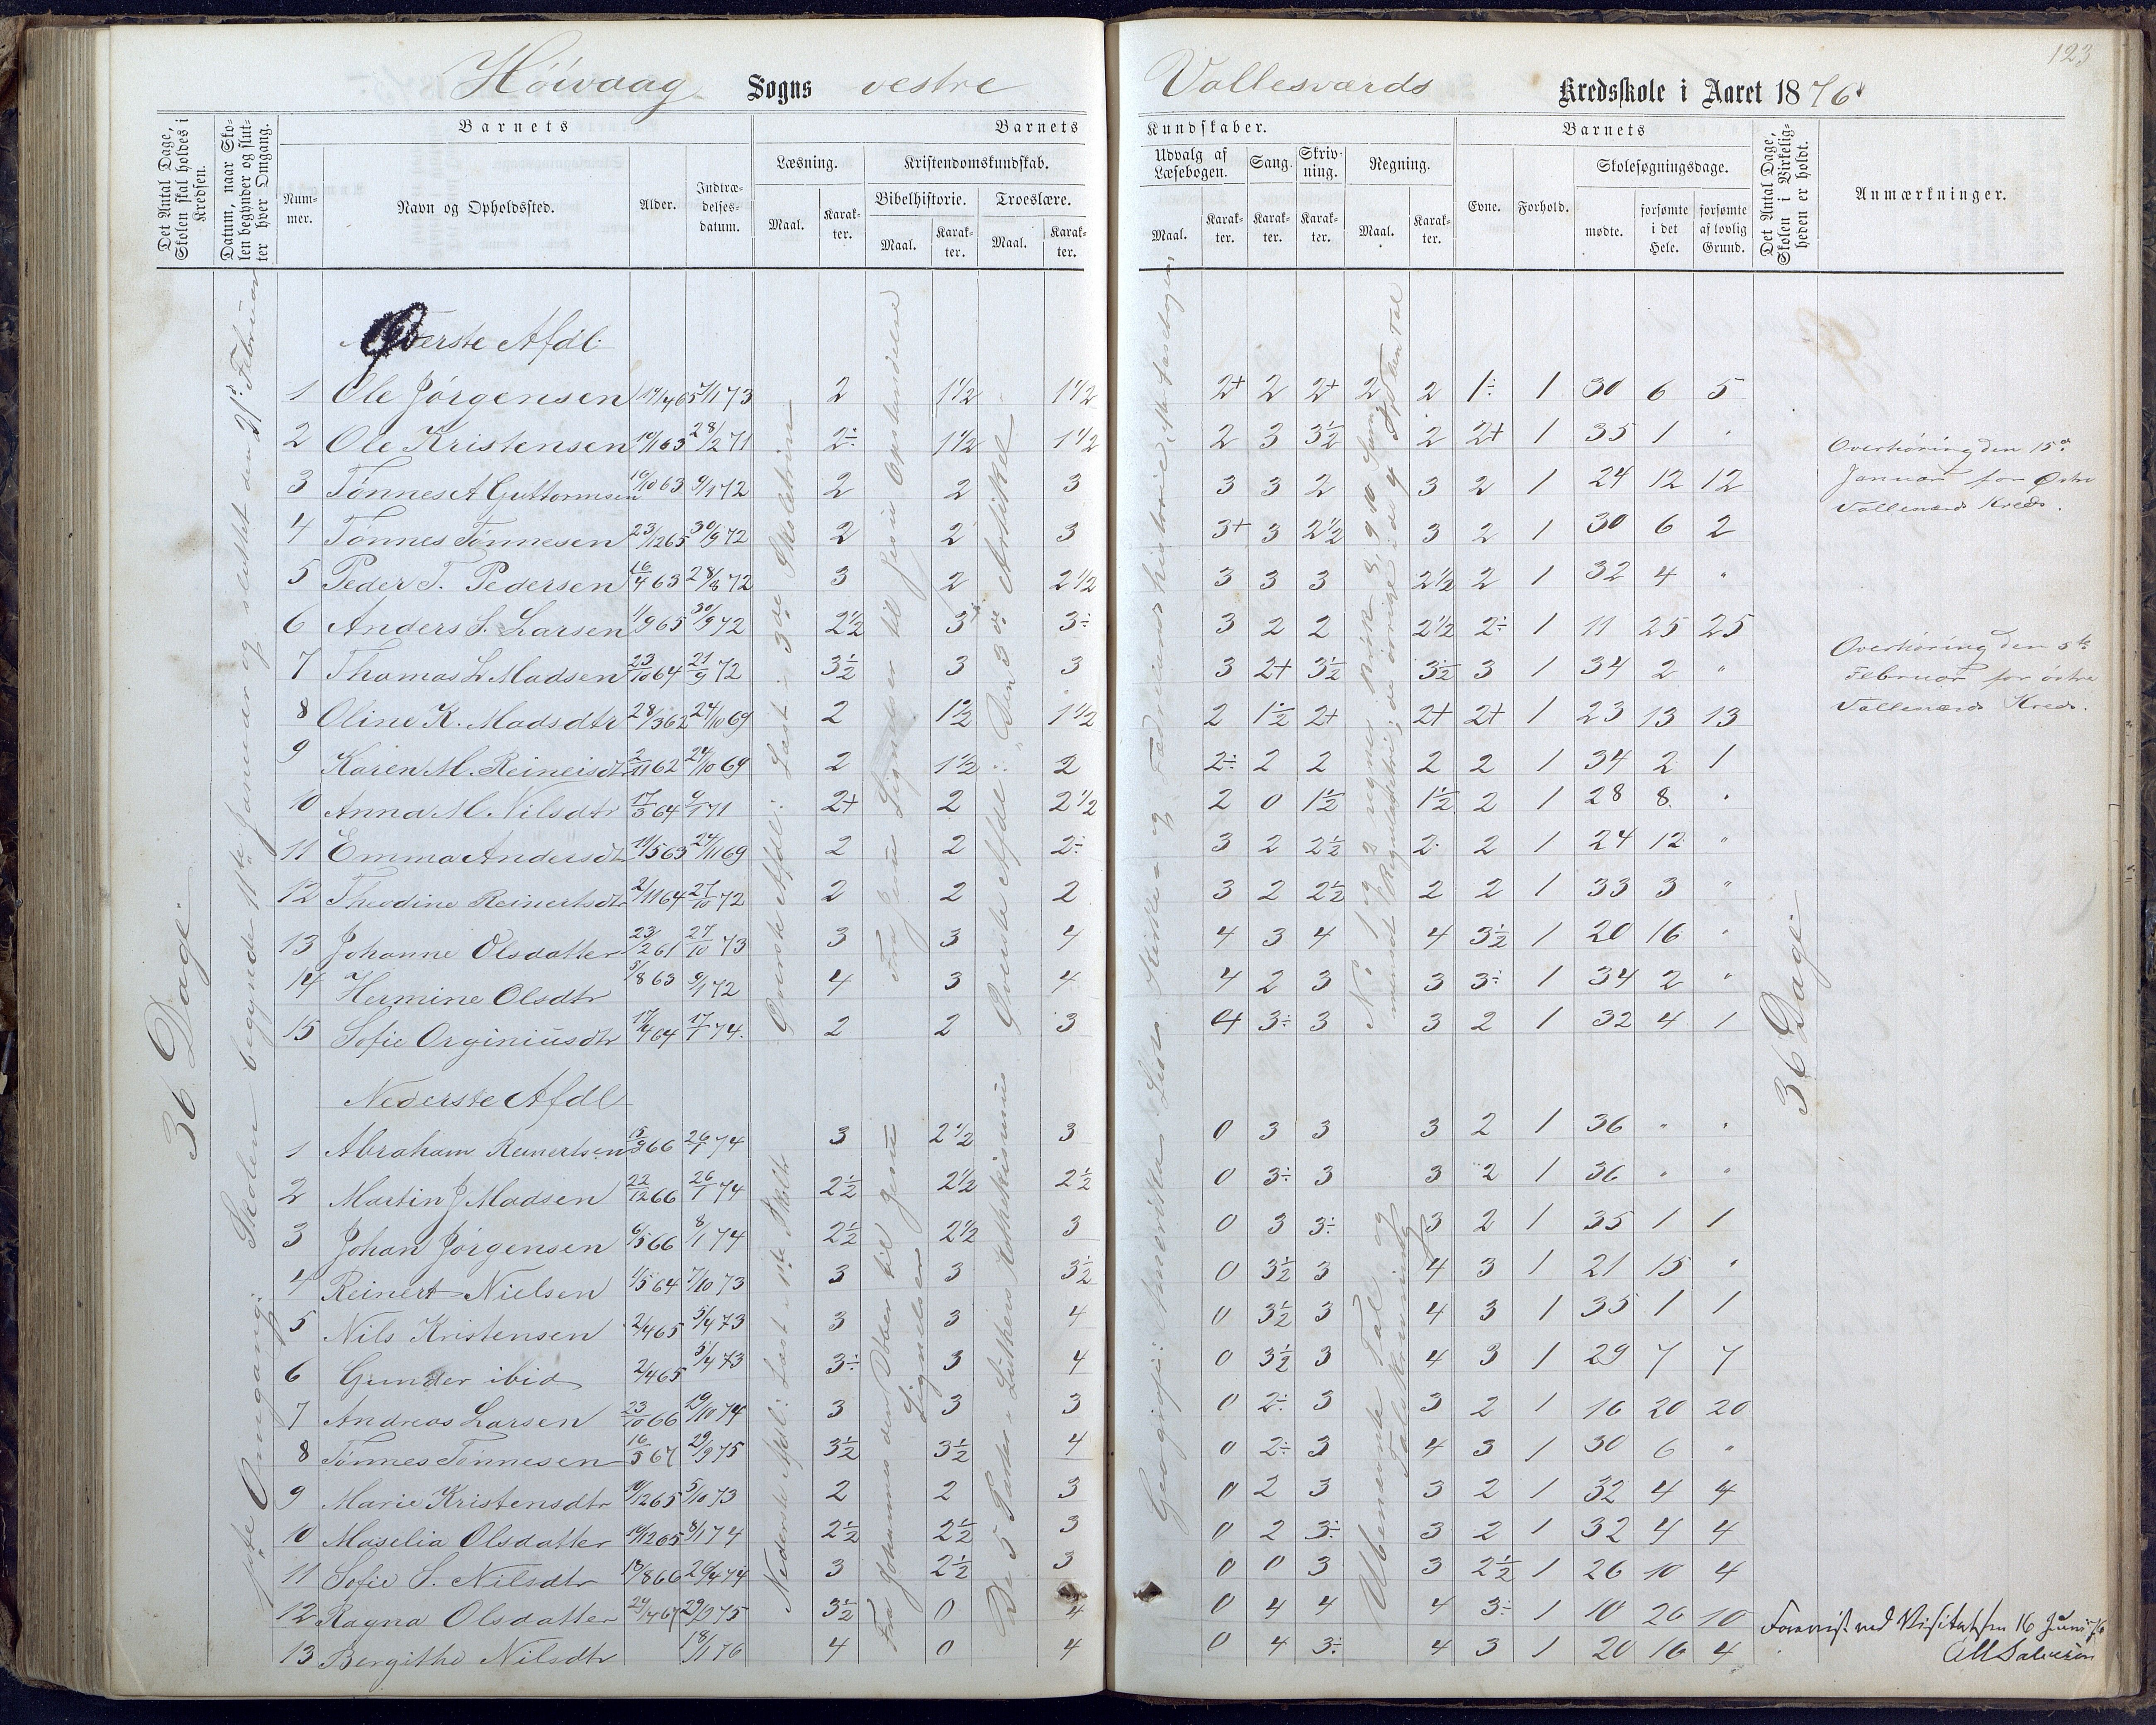 123
Höivaag Sogns vestre Vallesværds Kredsskole i Aaret 1876
Det Antal Dage, Skolen skal holdes i Kredsen.
Datum, naar Skolen begynder og slutter hver Omgang.
Barnets
Nummer.
Navn og Opholdssted.
Alder.
Indtrædelsesdatum.
Barnets Kundskaber.
Læsning.
Maal.
Karakter.
Kristendomskundskab.
Bibelhistorie.
Maal.
Karakter.
Troeslære.
Maal.
Karakter.
Udvalg af Læsebogen.
Maal.
Karakter.
Sang.
Karakter.
Skrivning.
Karakter.
Regning.
Maal.
Karakter.
Barnets
Evne.
Forhold.
Skolesøgningsdage.
mødte.
forsømte i det Hele.
forsømte af lovlig Grund.
Det Antal Dage, Skolen i Virkeligheden er holdt.
Anmærkninger.
36 Dage
1ste Omgang: Skolen begyndte 11te Januar og sluttet den 21de Februar
Øverste Afdl:
1 Ole Jörgensen 7/1 73 2 1 1/2 1 1/2 2+ 2 2+ 2 2 1÷ 1 30 6 5
2 Ole Kristensen 28/2 71 2÷ 1 1/2 1 1/2 2 3 3 1/2 2 2+ 1 35 1 "
3 Tönnes A Guttormsen 19/10 63 9/1 72 2 2 3 3 3 2 3 2 1 24 12 12
4 Tönnes Tönnesen 23/12 65 30/9 72 2 2 3 3+ 3 2 1/2 3 2 1 30 6 2
5 Peder T. Pedersen 16/4 63 28/8 72 3 2 2 1/2 3 3 3 2 1/2 2 1 32 4 "
6 Anders S. Larsen 1/9 65 30/9 72 2 1/2 3÷ 3÷ 3 2 2 2 1/2 2÷ 1 11 25 25
7 Thomas L Madsen 23/10 64 21/9 72 3 1/2 3 3 3 2+ 3 1/2 3 1/2 3 1 34 2 "
8 Oline K. Madsdtr 28/3 62 24/10 69 2 1 1/2 1 1/2 2 1 1/2 2+ 2+ 2+ 1 23 13 13
9 Karen M. Reineisdtr 2/11 62 24/10 69 2 1 1/2 2 2÷ 2 2 2 2 1 34 2 1
10 Anna M. Nilsdtr 17/3 64 9/1 71 2+ 2 2 1/2 2 0 1 1/2 1 1/2 2 1 28 8 "
11 Emma Andersdt 11/5 63 24/11 69 2 2 2÷ 3 2 2 1/2 2 2 1 24 12 "
12 Theodine Reinertsdtr 2/11 64 27/10 72 2 2 2 3 2 2 1/2 2 2 1 33 3 "
13 Johanne Olsdatter 23/2 61 27/10 73 3 3 4 4 3 4 4 3 1/2 1 20 16 "
14 Hermine Olsdtr 5/8 63 9/1 72 4 3 4 4 2 3 3 3÷ 1 34 2 "
15 Sofie Orginiusdtr 17/4 64 17/1 74. 2 2 3 4 3÷ 3 3 2 1 32 4 1
Øverste Afdl: Læst i 3de Skoletrin
Fra Jesu Lignelser til Jesu Opstandelse
Øverste Afdl: Den 3de Artikel
Nederste Afdl
1 Abraham Reinertsen 15/9 66 26/1 74 3 2 1/2 3 0 3 3 3 2 1 36 " "
2 Martin J Madsen 22/12 66 26/1 74 2 1/2 2 1/2 2 1/2 0 3÷ 3 3 2 1 36 " "
3 Johan Jörgensen 6/5 66 8/1 74 2 1/2 2 1/2 3 0 3 3÷ 3 2 1 35 1 1
4 Reinert Nielsen 1/5 64 7/10 73 3 3 3 1/2 0 3 1/2 3 4 3 1 21 15 "
5 Nils Kristensen 2/4 65 5/4 73 3 3 4 0 3 1/2 3 4 3 1 35 1 1
6 Gunder ibid 2/4 65 5/4 73 3÷ 3 4 0 3 1/2 3 4 3 1 29 7 7
7 Andreas Larsen 23/10 66 19/10 74 3 3 3 0 2÷ 3 3 2 1 16 20 20
8 Tönnes Tönnesen 16/5 67 29/9 75 3 1/2 3 1/2 4 0 2÷ 3 4 3 1 30 6 "
9 Marie Kristensdtr 10/12 65 5/10 73 2 2 3 0 2 3 3 2 1 32 4 4
10 Maselia Olsdatter 19/12 65 8/1 74 2 1/2 2 1/2 3 0 2 3÷ 3 2 1 32 4 4
11 Sofie S. Nilsdtr 13/8 66 26/4 74 3 2 1/2 3 0 0 3 3 2 1/2 1 26 10 4
12 Ragna Olsdatter 24/4 67 29/9 75 3 1/2 0 4 0 4 4 4 3÷ 1 10 26 10
13 Bergithe Nilsdtr 18/1 76 4 0 4 0 4 3÷ 4 3 1 20 16 4
Nederste Afdl: Læst 1ste Skoletr.
Fra Johannes den Døber til Jesu Lignelser
De 5 Parter i Luthers Kathekismus
Ubenævnte Tal og
36 Dage
Overhöring den 15de
Januar for Østre
Vallesværds Kreds.
Overhöring den 5te
Februar for östre
Vallesværds Kreds.
Forevist ved Visitatsen 16 Juni 76